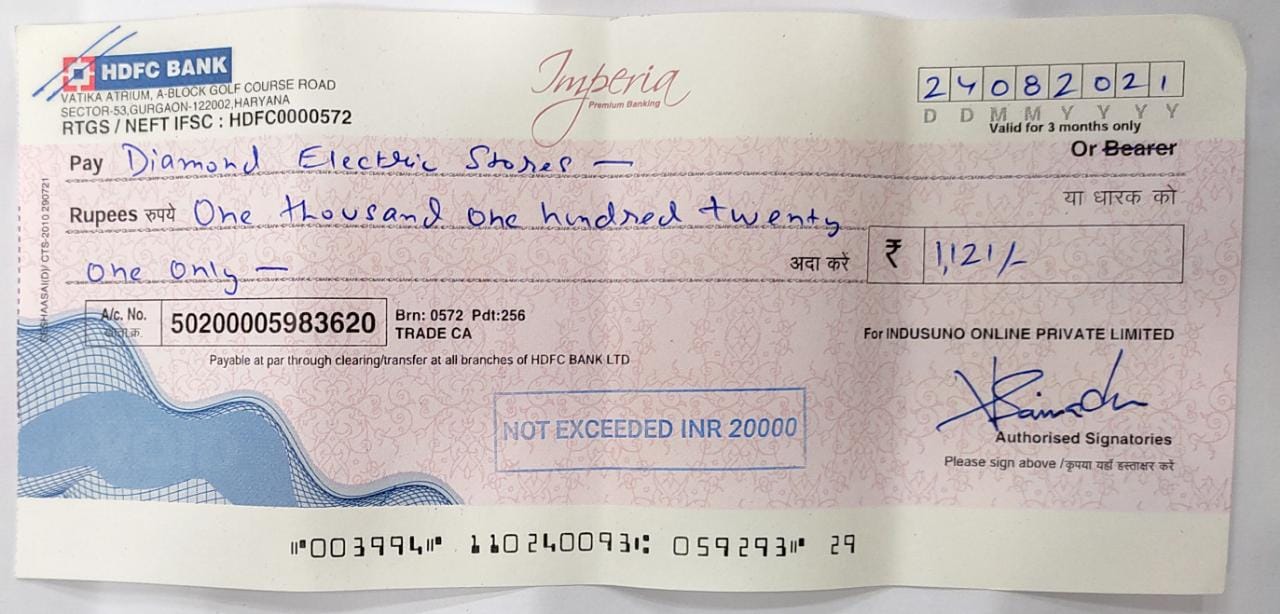 HDFC BANK
VATIKA ATRIUM, A-BLOCK GOLF COURSE ROAD
SECTOR-53,GURGAON-122002,HARYANA
RTGS / NEFT IFSC : HDFC0000572
Imperia
Premium Banking
24082021
D D M M Y Y Y Y
Valid for 3 months only
Pay Diamond Electric Stores —
Or Bearer
या धारक को
Rupees रुपये One thousand one hundred twenty
one only —
अदा करें ₹ 1,121/-
A/c. No.
खाता क्र.
50200005983620
Brn: 0572 Pdt:256
TRADE CA
Payable at par through clearing/transfer at all branches of HDFC BANK LTD
For INDUSUNO ONLINE PRIVATE LIMITED
NOT EXCEEDED INR 20000
Authorised Signatories
Please sign above /कृपया यहाँ हस्ताक्षर करें
CTS-2010 290721
⑈003994⑈ 110240093⑆ 059293⑈ 29